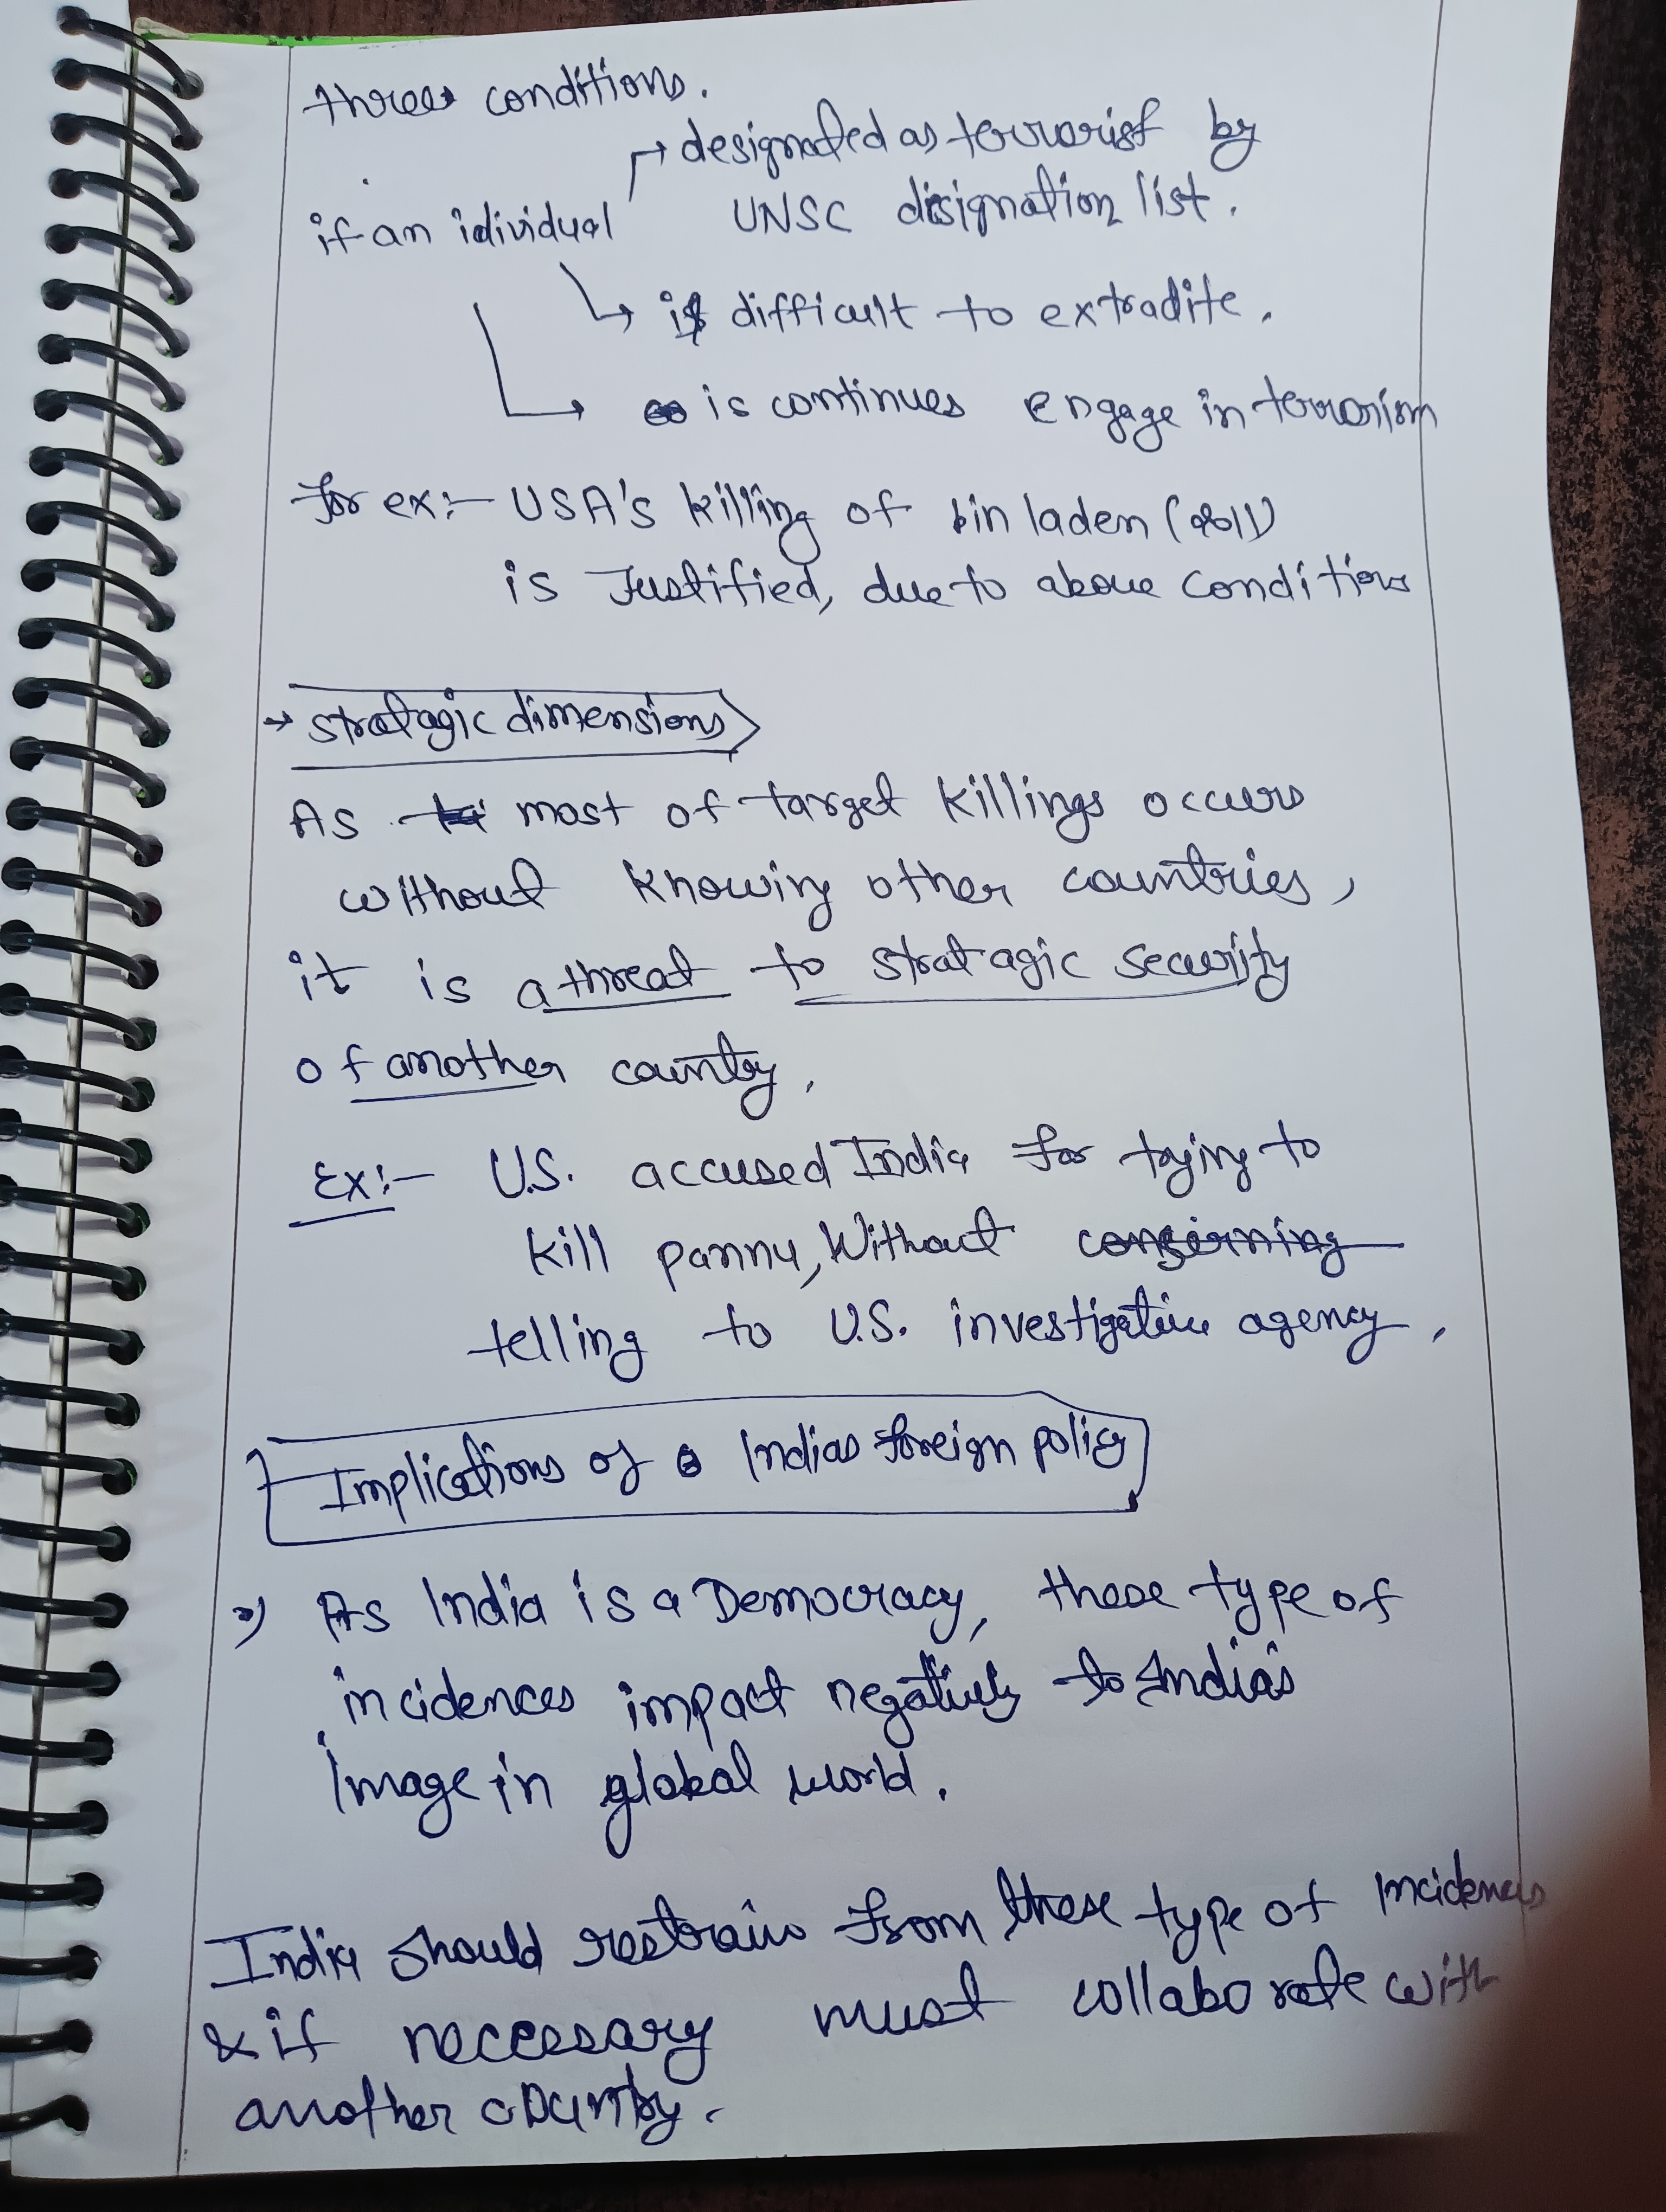 three conditions.
→ designated as terrorist by
if an idividual UNSC disignation list.
↳ is difficult to extradite.
→ is continues engage in terrorism
for ex:- USA's killing of bin laden (2011)
is Justified, due to above conditions
→ stratagic dimensions
As most of target killings occurs
without knowing other countries,
it is a threat to stratagic security
of another country.
Ex:- U.S. accused India for trying to
kill pannu, Without conserning
telling to U.S. investigative agency.
Implications of Indias foreign policy
As India is a Democracy, these type of
incidences impact negatively to India's
Image in global world.
India should restrain from these type of incidences
& if neccessary must collaborate with
another country.